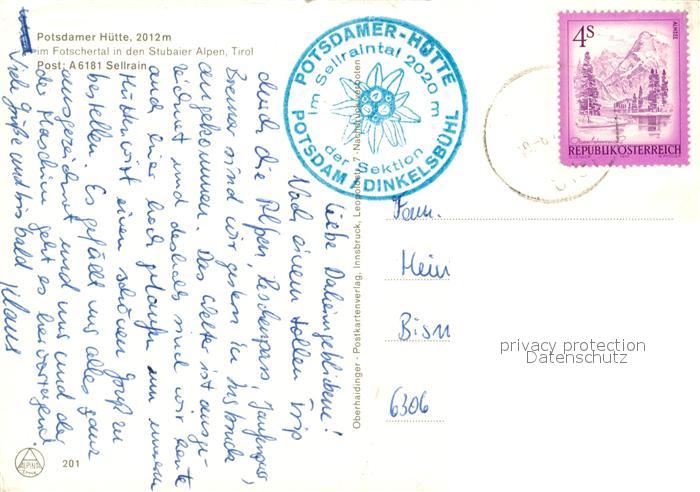 Potsdamer Hütte, 2012 m
im Fotschertal in den Stubaier Alpen, Tirol
Post: A 6181 Sellrain
POTSDAMER-HÜTTE
im Sellraintal 2020 m
der Sektion
POTSDAM / DINKELSBÜHL
4 S
ALMSEE
REPUBLIK ÖSTERREICH
Liebe Daheimgebliebene!
Nach einem tollen Trip
durch die Alpen, Reschenpass, Jaufenpass,
Brenner sind wir gestern in Insbruck
angekommen. Das Wetter ist ausge-
zeichnet und deshalb sind wir heute
und hier hoch gelaufen um unserem
Hüttenwirt einen schönen Gruß zu
bestellen. Es gefällt uns alles ganz
ausgezeichnet und uns und der
der Maschine geht es hervorragend.
Viele Grüße und bis bald Klaus
Oberhaidinger - Postkartenverlag, Innsbruck, Leopoldstr. 7 - Nachdruck verboten
Fam.
Hein
Bism
6306
privacy protection
Datenschutz
ALPINA
201